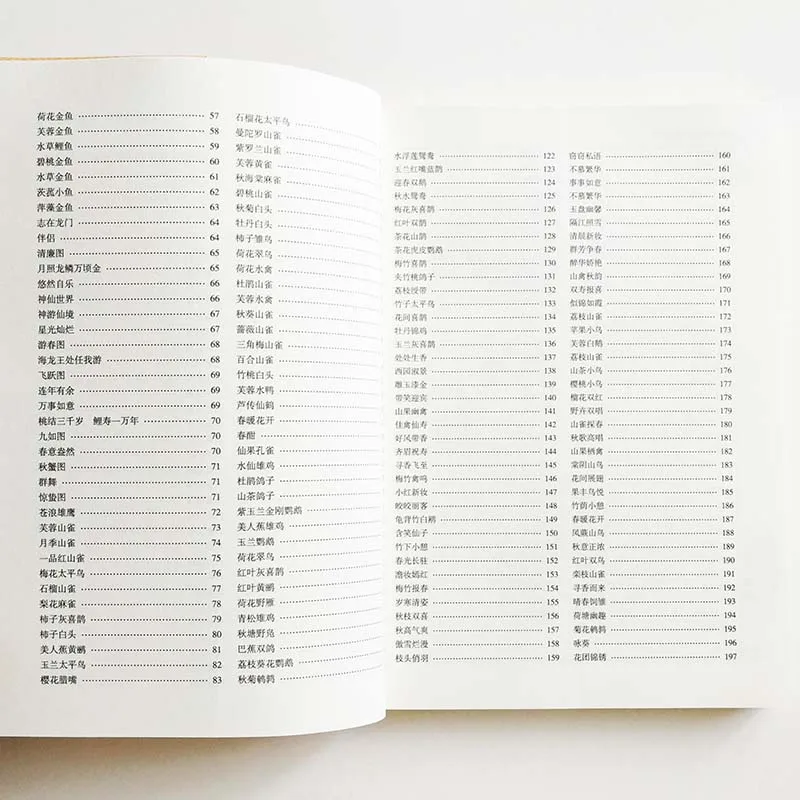 荷花金鱼 57
芙蓉金鱼 58
水草鲤鱼 59
碧桃金鱼 60
水草金鱼 61
茨菰小鱼 62
萍藻金鱼 63
志在龙门 64
伴侣 64
清廉图 65
月照龙鳞万顷金 65
悠然自乐 66
神仙世界 66
神游仙境 67
星光灿烂 67
游春图 68
海龙王处任我游 68
飞跃图 69
连年有余 69
万事如意 69
桃结三千岁 鲤寿一万年 70
九如图 70
春意盎然 70
秋蟹图 71
群舞 71
惊蛰图 71
苍浪雄鹰 72
芙蓉山雀 73
月季山雀 74
一品红山雀 75
梅花太平鸟 76
石榴山雀 77
梨花麻雀 78
柿子灰喜鹊 79
柿子白头 80
美人蕉黄鹂 81
玉兰太平鸟 82
樱花腊嘴 83
石榴花太平鸟
曼陀罗山雀
紫罗兰山雀
芙蓉黄雀
秋海棠麻雀
碧桃山雀
秋菊白头
牡丹白头
柿子雏鸟
荷花翠鸟
荷花水禽
杜鹃山雀
芙蓉水禽
秋葵山雀
蔷薇山雀
三角梅山雀
百合山雀
竹桃白头
芙蓉水鸭
芦传仙鹤
春暖花开
春酣
仙果孔雀
水仙雄鸡
杜鹃鸽子
山茶鸽子
紫玉兰金刚鹦鹉
美人蕉雄鸡
玉兰鹦鹉
荷花翠鸟
红叶灰喜鹊
红叶黄鹂
荷花野雁
青松雉鸡
秋塘野凫
巴蕉双鸽
荔枝葵花鹦鹉
秋菊鹌鹑
水浮莲鸳鸯 122
玉兰红嘴蓝鹊 123
迎春双鹅 124
秋水鸳鸯 125
梅花灰喜鹊 126
红叶双鹊 127
茶花山鹊 128
茶花虎皮鹦鹉 129
梅竹喜鹊 130
夹竹桃鸽子 131
荔枝绶带 132
竹子太平鸟 133
花间喜鹊 134
牡丹锦鸡 135
玉兰灰喜鹊 136
处处生香 137
西园淑景 138
雕玉漆金 139
带笑迎宾 140
山果幽禽 141
佳禽仙寿 142
好风带香 143
齐眉祝寿 144
寻香飞至 145
梅竹禽鸣 146
小红新妆 147
皎皎丽客 148
龟背竹白鹇 149
含笑仙子 150
竹下小憩 151
春光长驻 152
澹妆嫣红 153
梅竹报春 154
岁寒清姿 155
秋枝双喜 156
秋高气爽 157
傲雪烂漫 158
枝头俏羽 159
窃窃私语 160
不慕繁华 161
事事如意 162
不慕繁华 163
玉盘幽馨 164
隔江照雪 165
清晨新妆 166
群芳争春 167
醉华娇艳 168
山禽秋韵 169
双寿报喜 170
似锦如霞 171
荔枝山雀 172
苹果小鸟 173
芙蓉白鹅 174
荔枝山雀 175
山茶小鸟 176
樱桃小鸟 177
榴花双红 178
野卉双唱 179
山雀探春 180
秋歌高唱 181
山果栖禽 182
棠阴山鸟 183
花间展翅 184
果丰鸟悦 185
竹荫小憩 186
春暖花开 187
凤蕨山鸟 188
秋意正浓 189
红叶双鸟 190
栾枝山雀 191
寻香而来 192
晴春饲雏 193
荷塘幽趣 194
菊花鹌鹑 195
咏葵 196
花团锦锈 197